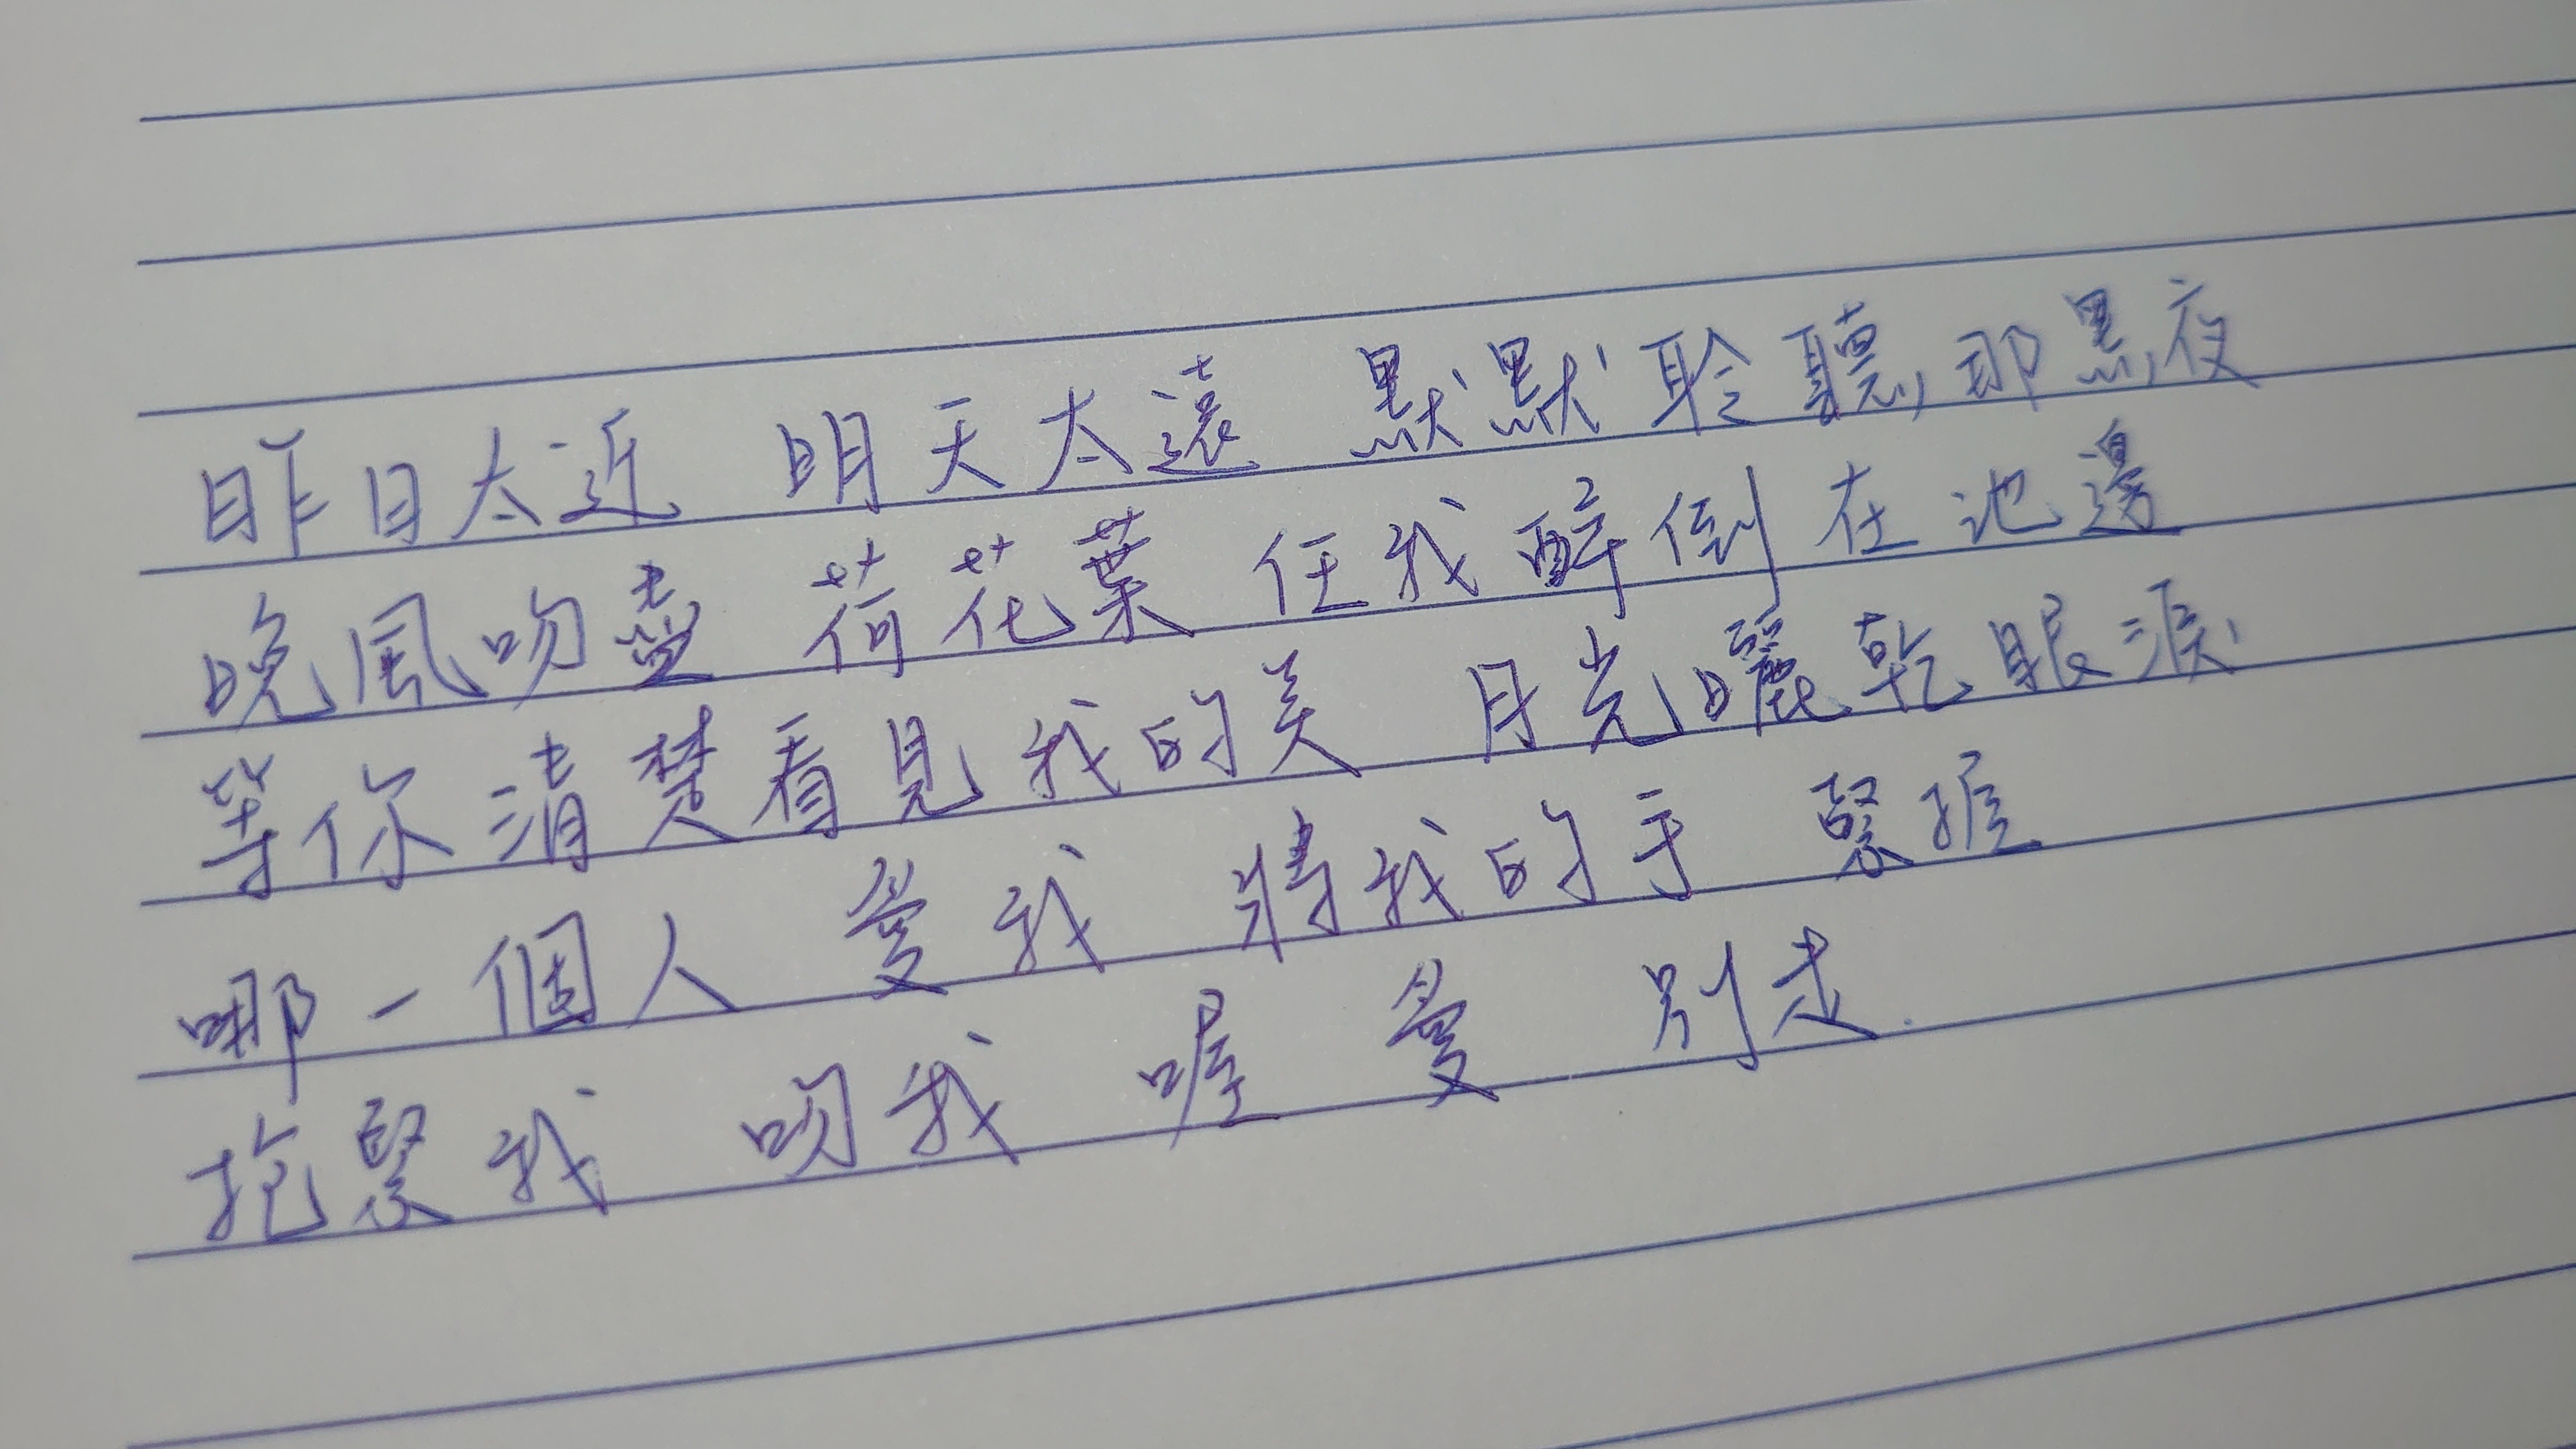 昨日太近 明天太遠 默默聆聽那黑夜
晚風吻盡 荷花葉 任我醉倒在池邊
等你清楚看見我的美 月光曬乾眼淚
哪一個人 愛我 將我的手 緊握
抱緊我 吻我 喔 愛 別走